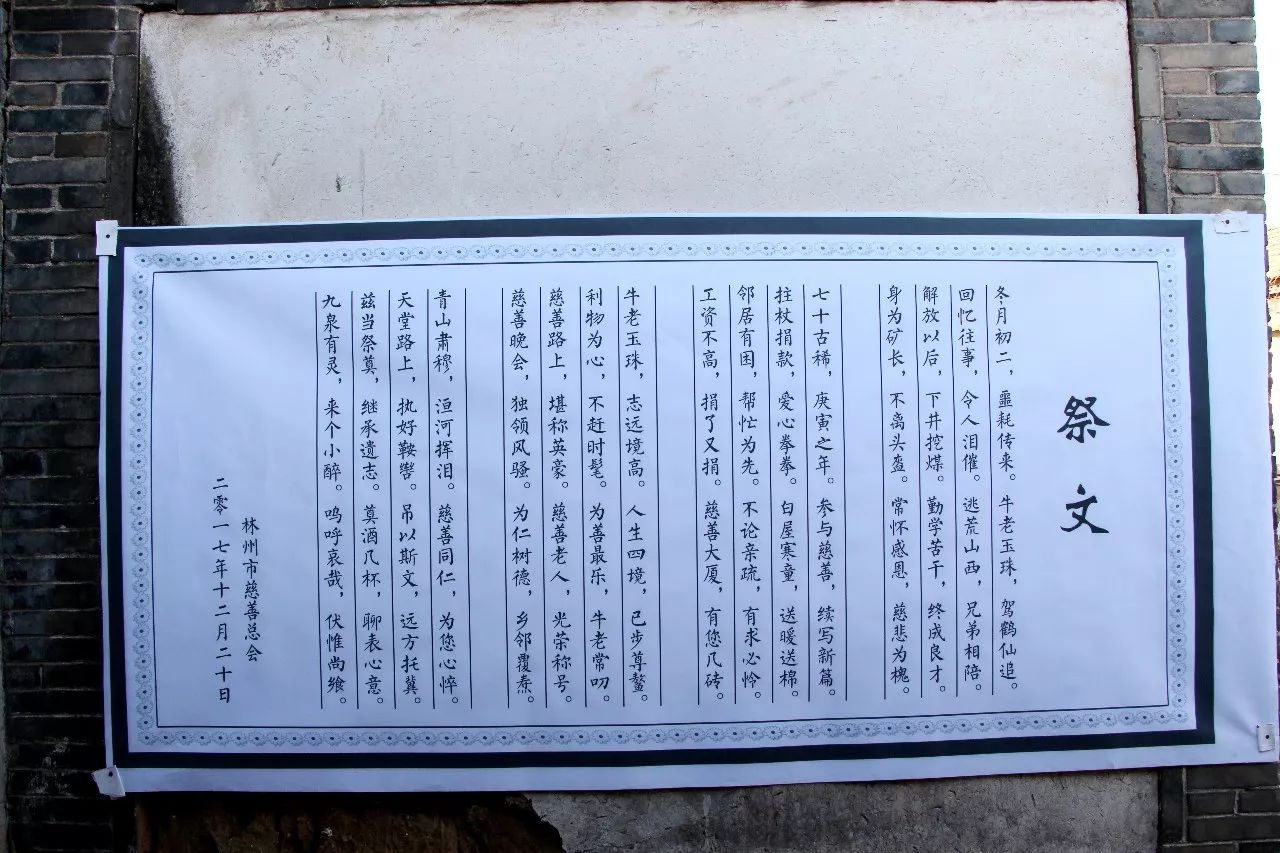 祭文
冬月初二，噩耗传来。牛老玉珠，驾鹤仙追。
回忆往事，令人泪催。逃荒山西，兄弟相陪。
解放以后，下井挖煤。勤学苦干，终成良才。
身为矿长，不离头盔。常怀感恩，慈悲为槐。
七十古稀，庚寅之年。参与慈善，续写新篇。
拄杖捐款，爱心拳拳。白屋寒童，送暖送棉。
邻居有困，帮忙为先。不论亲疏，有求必怜。
工资不高，捐了又捐。慈善大厦，有您几砖。
牛老玉珠，志远境高。人生四境，已步尊鳌。
利物为心，不赶时髦。为善最乐，牛老常叨。
慈善路上，堪称英豪。慈善老人，光荣称号。
慈善晚会，独领风骚。为仁树德，乡邻覆焘。
青山肃穆，洹河挥泪。慈善同仁，为您心悴。
天堂路上，执好鞍辔。吊以斯文，远方托冀。
兹当祭奠，继承遗志。奠酒几杯，聊表心意。
九泉有灵，来个小醉。呜呼哀哉，伏惟尚飨。
林州市慈善总会
二零一七年十二月二十日